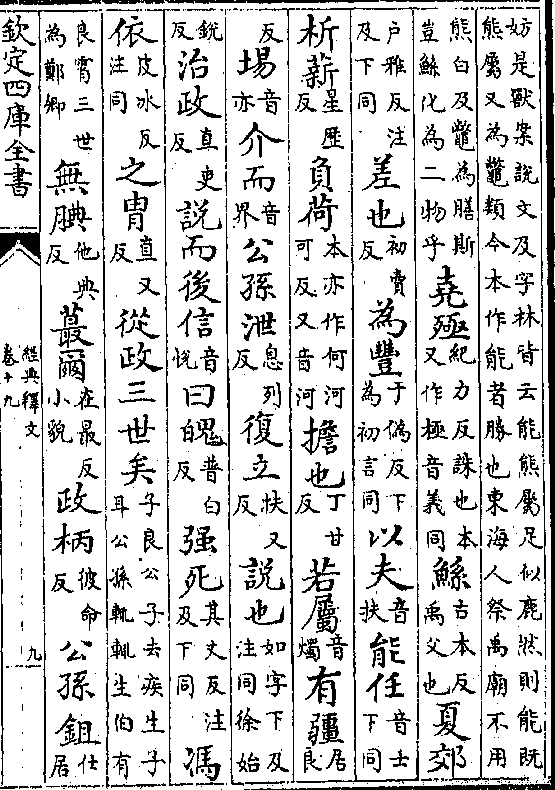 妨是獸案說文及字林皆云能熊屬足似鹿然則能既
熊屬又為鼈類今本作能者勝也東海人祭禹廟不用
熊白及鼈為膳斯豈鯀化為二物乎堯殛紀力反誅也本又作極音義同鯀古本反禹父也夏郊
户雅反注及下同差也初賣反為豐于偽反下為初言同以夫音扶能任音士下同
析薪星歷反負荷本亦作何河可反又音河擔也丁甘反若屬音燭有疆居良
反埸音亦介而音界公孫泄息列反復立扶又反說也如字下及注同徐始
銳反治政直吏反說而後信音悅曰魄普白反强死其丈反注及下同馮
依皮冰反注同之胄直又反從政三世矣子良公子去疾生子耳公孫輒輒生伯有
良霄三世為鄭卿無腆他典反蕞爾在最反小貌政柄彼命反公孫鉏仕居
欽定四庫全書
經典釋文
卷十九
九